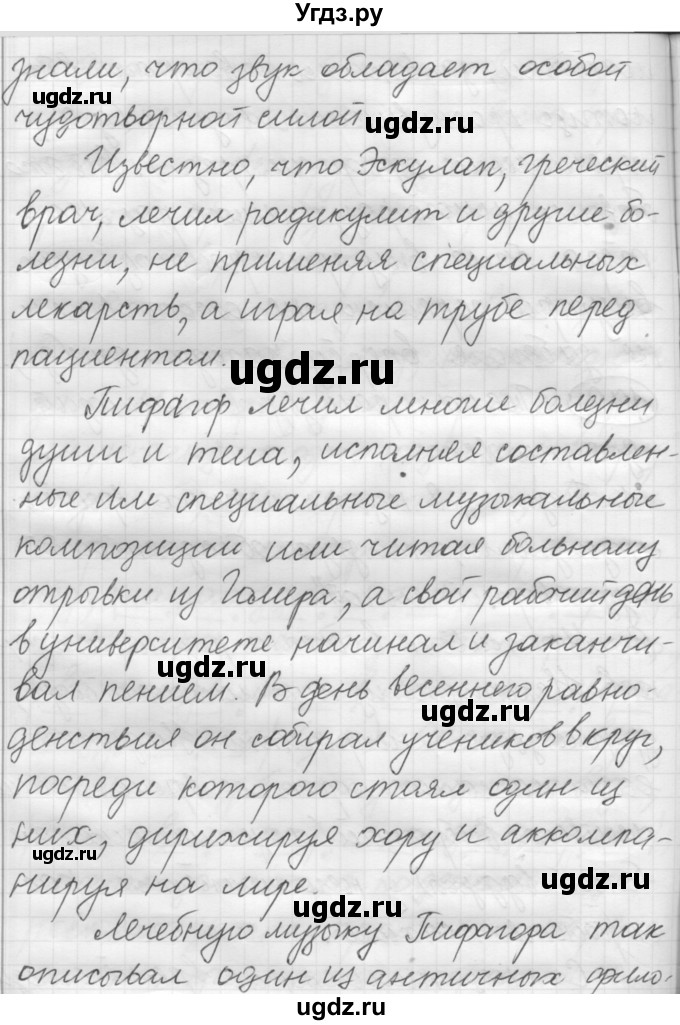 Угдз.ру
знали, что звук обладает особой
ugdz.ru
чудотворной силой
ugdz.ru
Известно, что Эскулап, греческий
врач, лечил радикулит и другие бо-
лезни, не применяя специальных
лекарств, а играя на трубе перед
пациентом.
ugdz.ru
Пифагор лечил многие болезни
души и тела, исполняя составлен-
ные им специальные музыкальные
композиции или читая больному
отрывки из Гомера, а свой рабочий день
в университете начинал и заканчи-
ugdz.ru
вал пением. В день весеннего равно-
ugdz.ru
денствия он собирал учеников в круг,
посреди которого стоял один из
них, дирижируя хору и аккомпа-
ugdz.ru
нируя на лире.
ugdz.ru
ugdz.ru
Лечебную музыку Пифагора так
описывал один из античных фило-
ugdz.ru